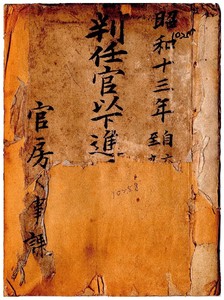 昭和十三年 自六
至九
判任官以下進
官房人事課